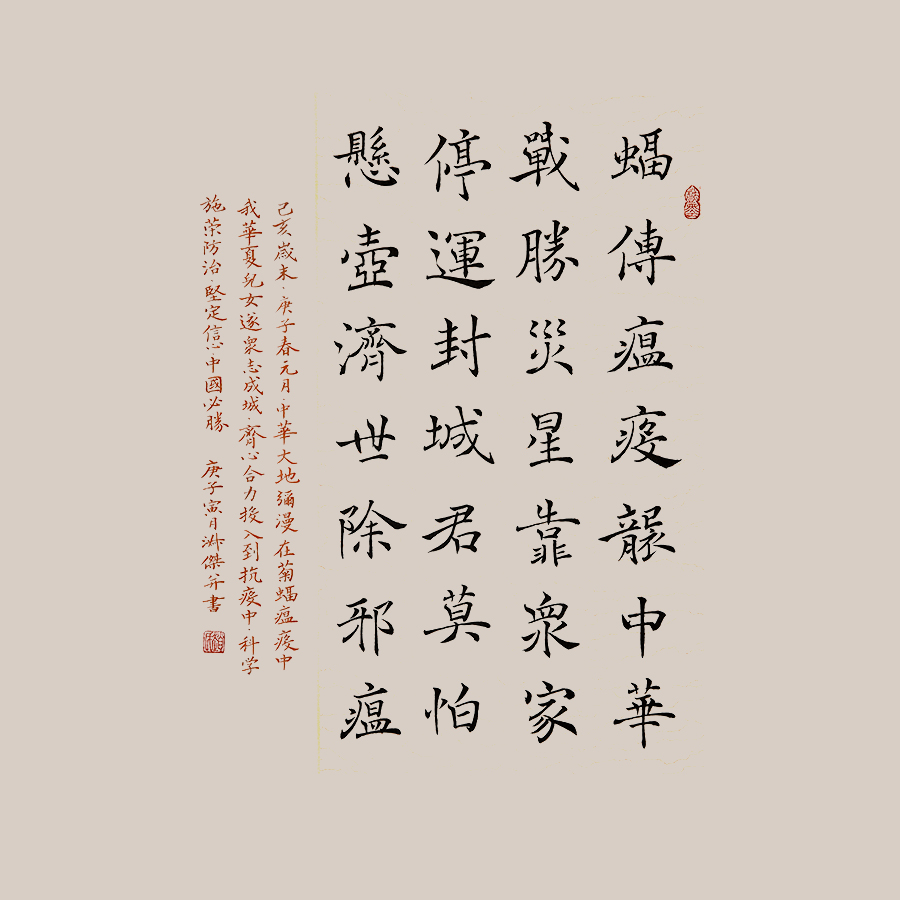 蝠傳瘟疫襲中華
戰勝災星靠衆家
停運封城君莫怕
懸壺濟世除邪瘟
己亥歲末·庚子春元月·中華大地彌漫在菊蝠瘟疫中
我華夏兒女遂衆志成城·齊心合力投入到抗疫中·科学
施荣防治·堅定信心·中國必勝 庚子寅月 傑并書